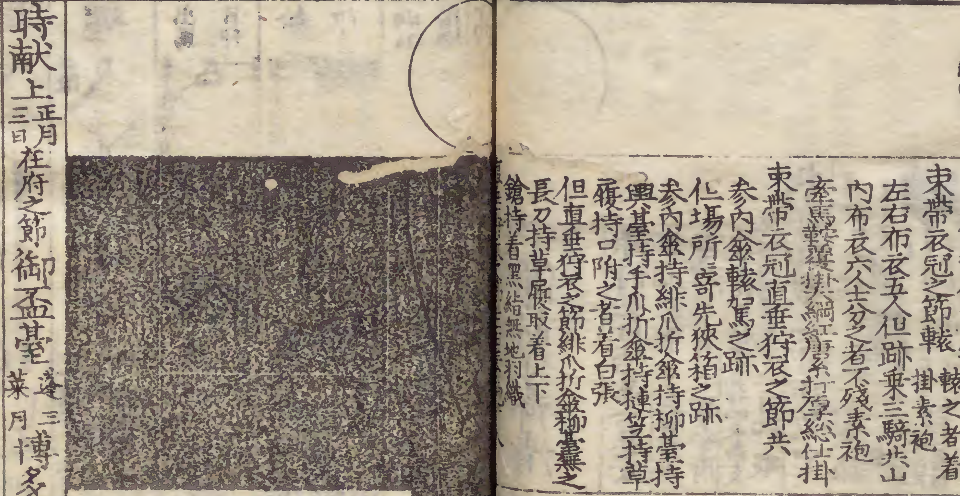 束帯衣冠之節轅
轅之者着
掛素袍
左右布衣五人但跡乗三騎共山
内布衣六人士分之者不残素袍
牽馬鞍覆掛
束帯衣冠直垂狩衣之節共
参内傘轅駕馬之跡
仕場所ニ寄先狭箱之跡
参内傘持緋爪折傘持柳䑓持
持手爪折傘持
笠持草
履持口附之者着白張
但直垂狩衣之節緋爪折傘柳䑓無之
長刀持草履取着上下
鎗持着黒
無地羽織
時献上
正月
三日
在府之節御盃䑓
蓬
莱
三
月
博多